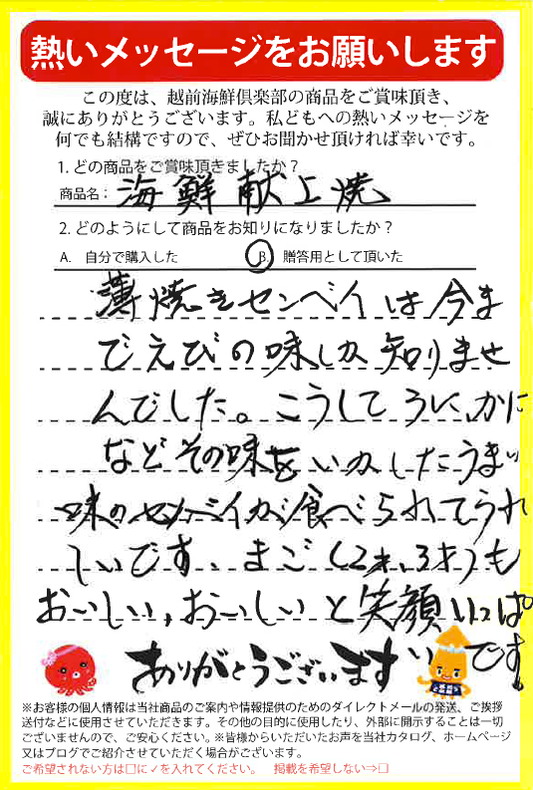 熱いメッセージをお願いします
この度は、越前海鮮倶楽部の商品をご賞味頂き、
誠にありがとうございます。私どもへの熱いメッセージを
何でも結構ですので、ぜひお聞かせ頂ければ幸いです。
1. どの商品をご賞味頂きましたか？
商品名： 海鮮献上焼
2. どのようにして商品をお知りになりましたか？
A. 自分で購入した B. 贈答用として頂いた
薄焼きセンベイは今ま
でえびの味しか知りませ
んでした。こうしてうに、かに
などその味をいかしたうまい
味のセンベイが食べられてうれ
しいです。まご（2才、3才）も
おいしい，おいしいと笑顔いっぱ
いです。
ありがとうございます
※お客様の個人情報は当社商品のご案内や情報提供のためのダイレクトメールの発送、ご挨拶
送付などに使用させていただきます。その他の目的に使用したり、外部に開示することは一切
ございませんので、ご安心ください。※皆様からいただいたお声を当社カタログ、ホームページ
又はブログでご紹介させていただく場合がございます。
ご希望されない方は□に✓を入れてください。 掲載を希望しない⇒□